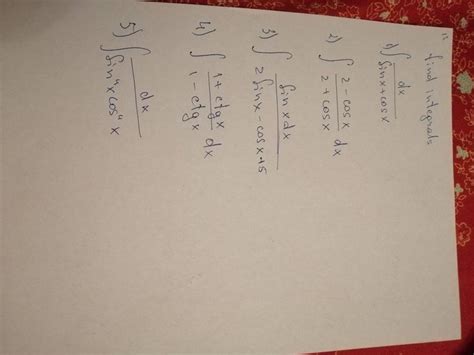 find integrals
1) ∫ dx / (sinx + cosx)
2) ∫ (2 - cosx) / (2 + cosx) dx
3) ∫ sinx dx / (2 sinx - cosx + 5)
4) ∫ (1 + ctgx) / (1 - ctgx) dx
5) ∫ dx / (sin⁴x cos⁴x)